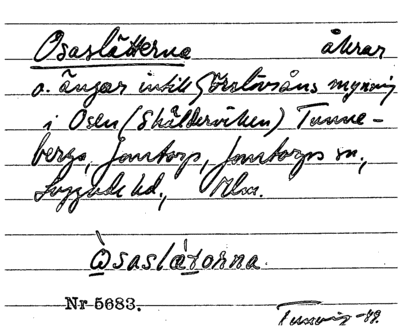 Osaslätterna åkrar
o. ängar intill Görslövsåns mynning
i Osen (Skälderviken) Tunne-
berga, Jonstorp, Jonstorps sn,
Luggude hd, Mlm.
Òsaslätorna.
Nr 5683.